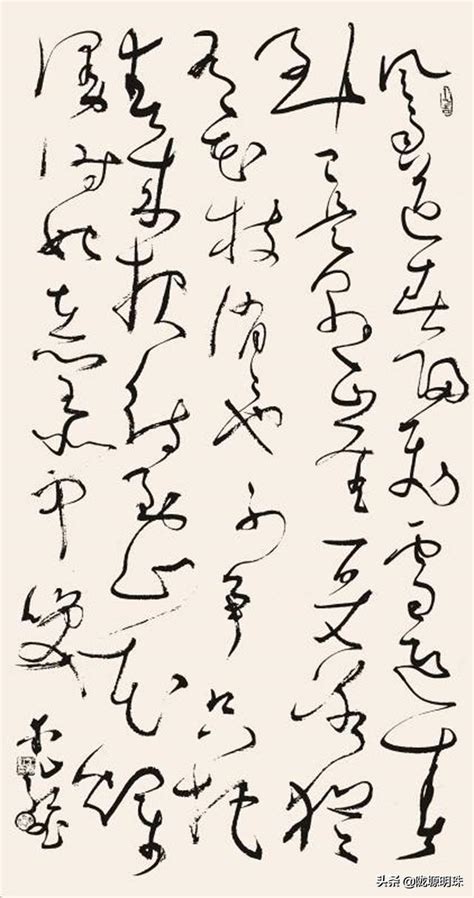 风雨送春归飞雪迎春
到已是悬崖百丈冰犹
有花枝俏々也不争只把
春来报待到山花烂
漫时她在丛中笑
头条 @陇塬明珠